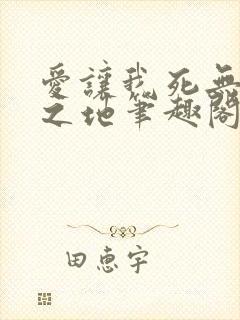 愛讓我死無
之地筆趣閣
田惠宇